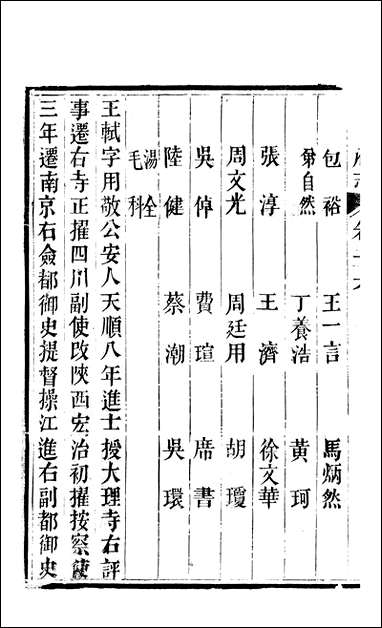 包裕　王一言　馬炳然
自然　丁養浩　黃珂
張淳　王濟　徐文華
周文光　周廷用　胡瓊
吳倬　費瑄　席書
陸健　蔡潮　吳環
湯全
毛科
王軾字用敬公安人天順八年進士授大理寺右評
事遷右寺正擢四川副使改陝西宏治初擢按察使
三年遷南京右僉都御史提督操江進右副都御史